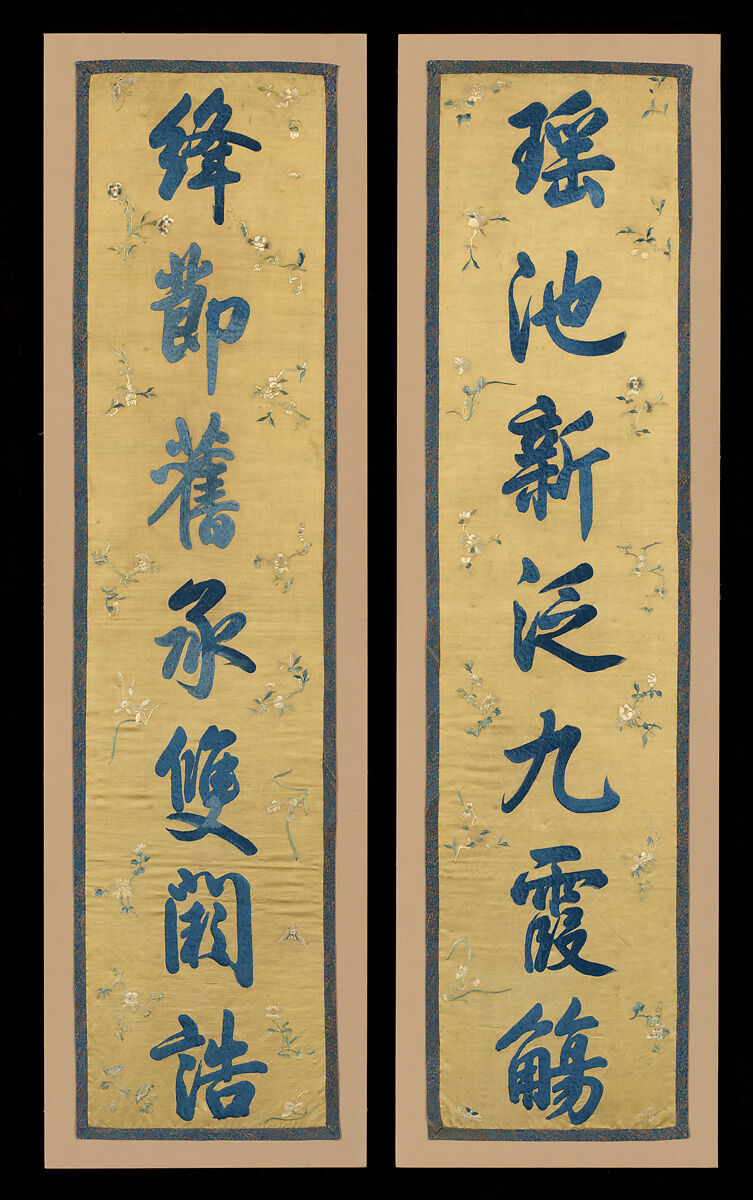 瑶池新泛九霞觴
絳節舊承雙闕誥